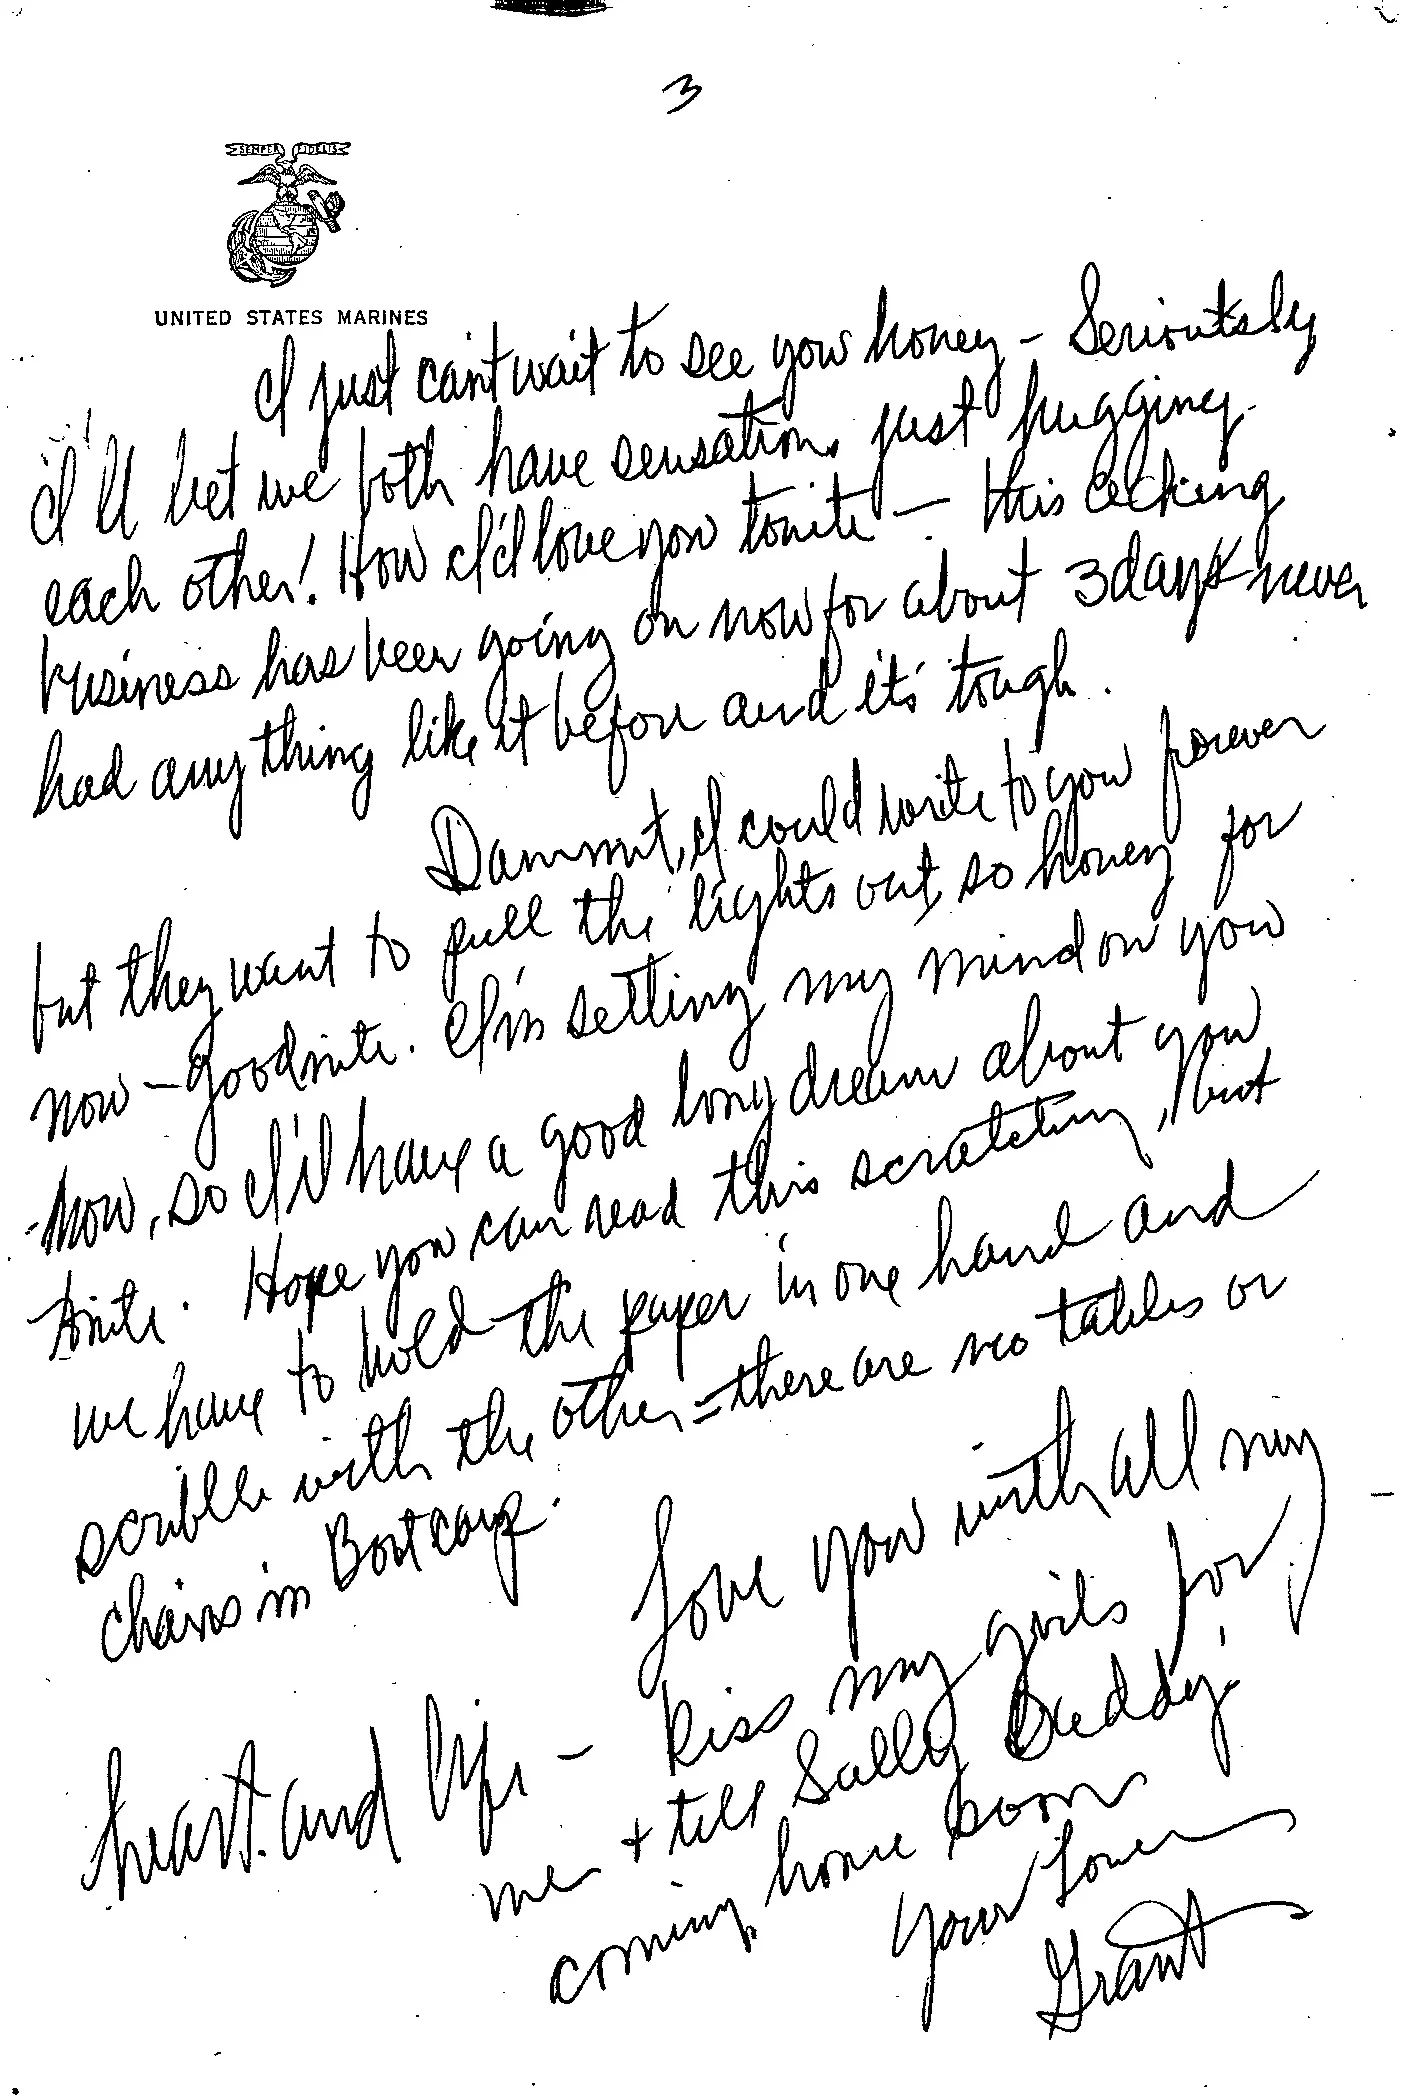 3
SEMPER FIDELIS
UNITED STATES MARINES
I just can't wait to see you honey – Serioutsly
I'll bet we both have sensations just hugging
each other! How I'd love you tonite – this aching
business has been going on now for about 3 days never
had anything like it before and it's tough.
Dammit, I could write to you forever
but they want to pull the lights out, so honey for
now – goodnite. I'm setting my mind on you
now, so I'll have a good long dream about you
tonite. Hope you can read this scratching, but
we have to hold the paper in one hand and
scribble with the other = there are no tables or
chairs in Bootcamp.
Love you with all my
heart and life – Kiss my girls for
me + tell Sally Daddy
coming home soon
Your Lover
Grant